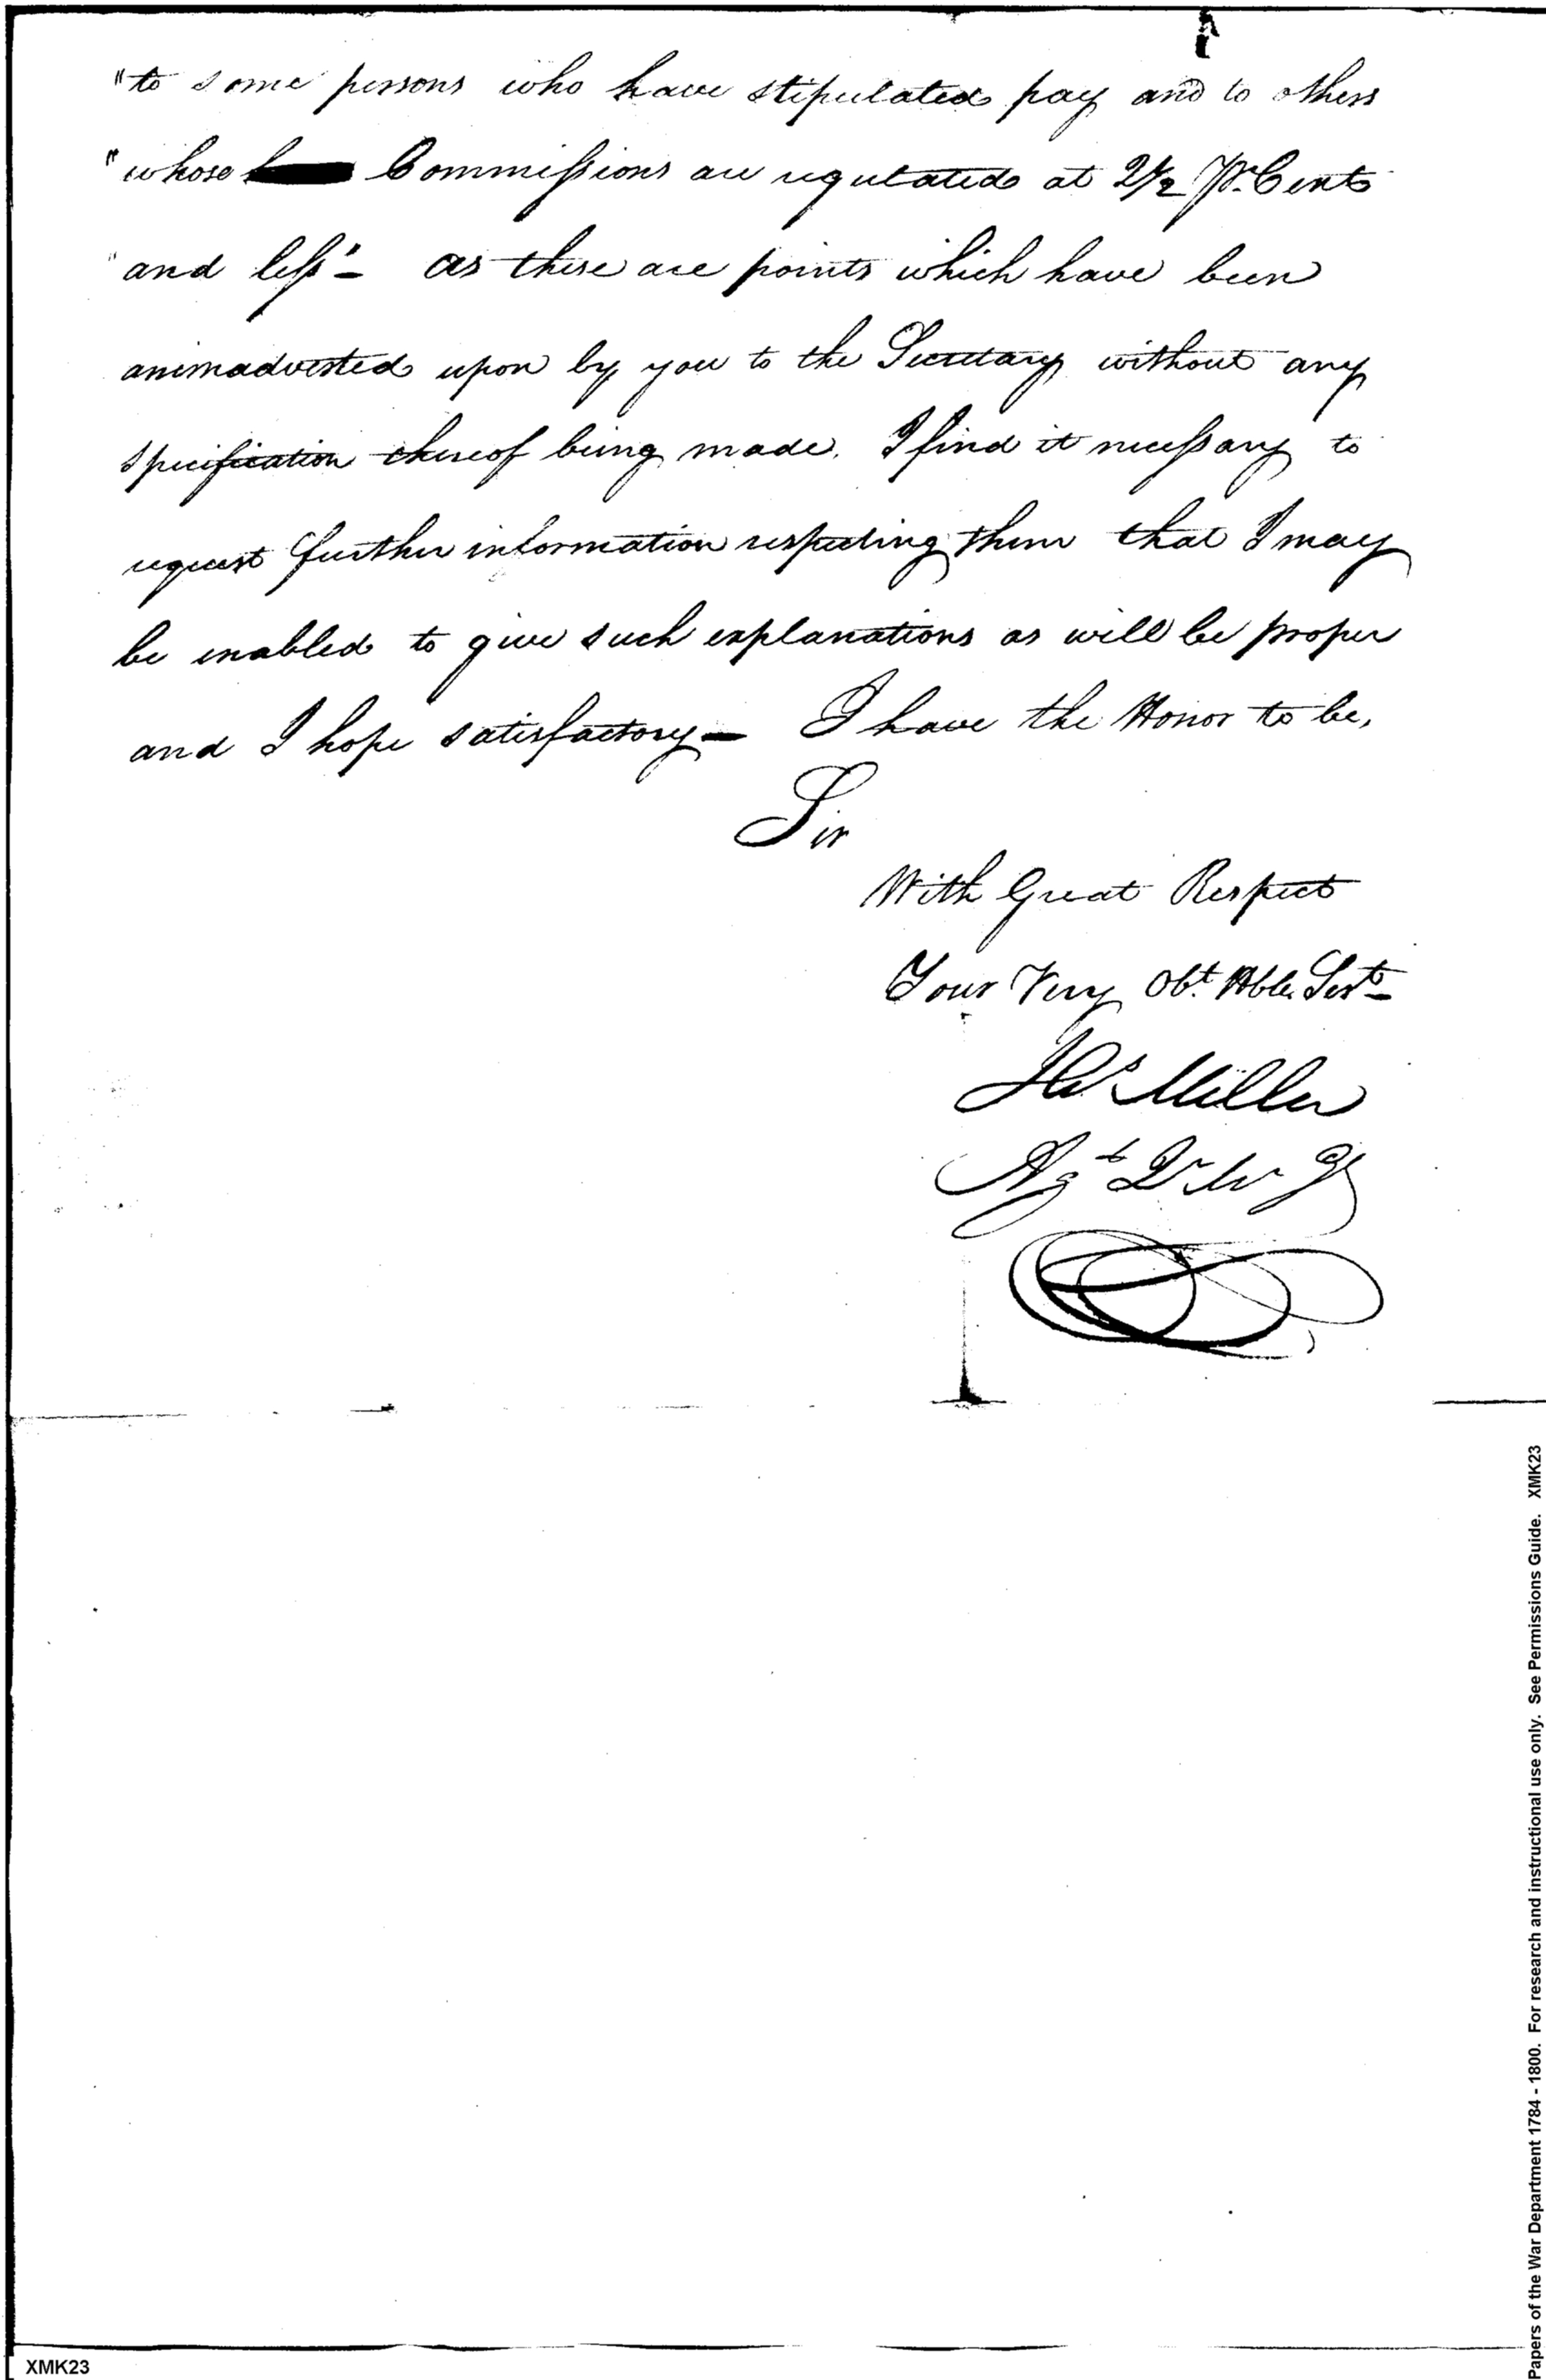 "to some persons who have stipulated pay and to others
"whose Commissions are regulated at 2½ Pr. Cent
"and less"- as these are points which have been
animadverted upon by you to the Secretary without any
specification thereof being made. I find it necessary to
request further information respecting them that I may
be enabled to give such explanations as will be proper
and I hope satisfactory - I have the Honor to be,
Sir
With Great Respect
Your Very Obt. Hble Servt-
Miller
Agt Qr Mr Gl
Papers of the War Department 1784 - 1800. For research and instructional use only. See Permissions Guide. XMK23
XMK23